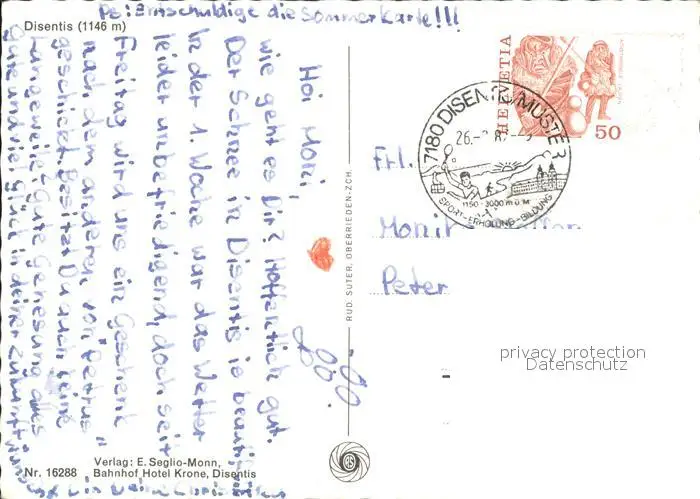 PS: Entschuldige die Sommerkarte!!!
Disentis (1146 m)
Hoi Moni,
wie geht es Dir? Hoffentlich gut.
Der Schnee in Disentis is beautiful
In der 1. Woche war das Wetter
leider unbefriedigend, doch seit
Freitag wird uns ein Geschenk
nach dem anderen von "Petrus"
geschickt. Besitzt Du auch keine
Langeweile? Gute Genesung alles
Gute und viel Glück in deiner Zukunft
Nr. 16288
Verlag: E. Seglio-Monn,
Bahnhof Hotel Krone, Disentis
RUD. SUTER, OBERRIEDEN-ZCH.
HELVETIA
50
7180 DISENTIS/MUSTER
26.
1150-3000 m ü.M
SPORT-ERHOLUNG-BILDUNG
Frl.
Peter
privacy protection
Datenschutz